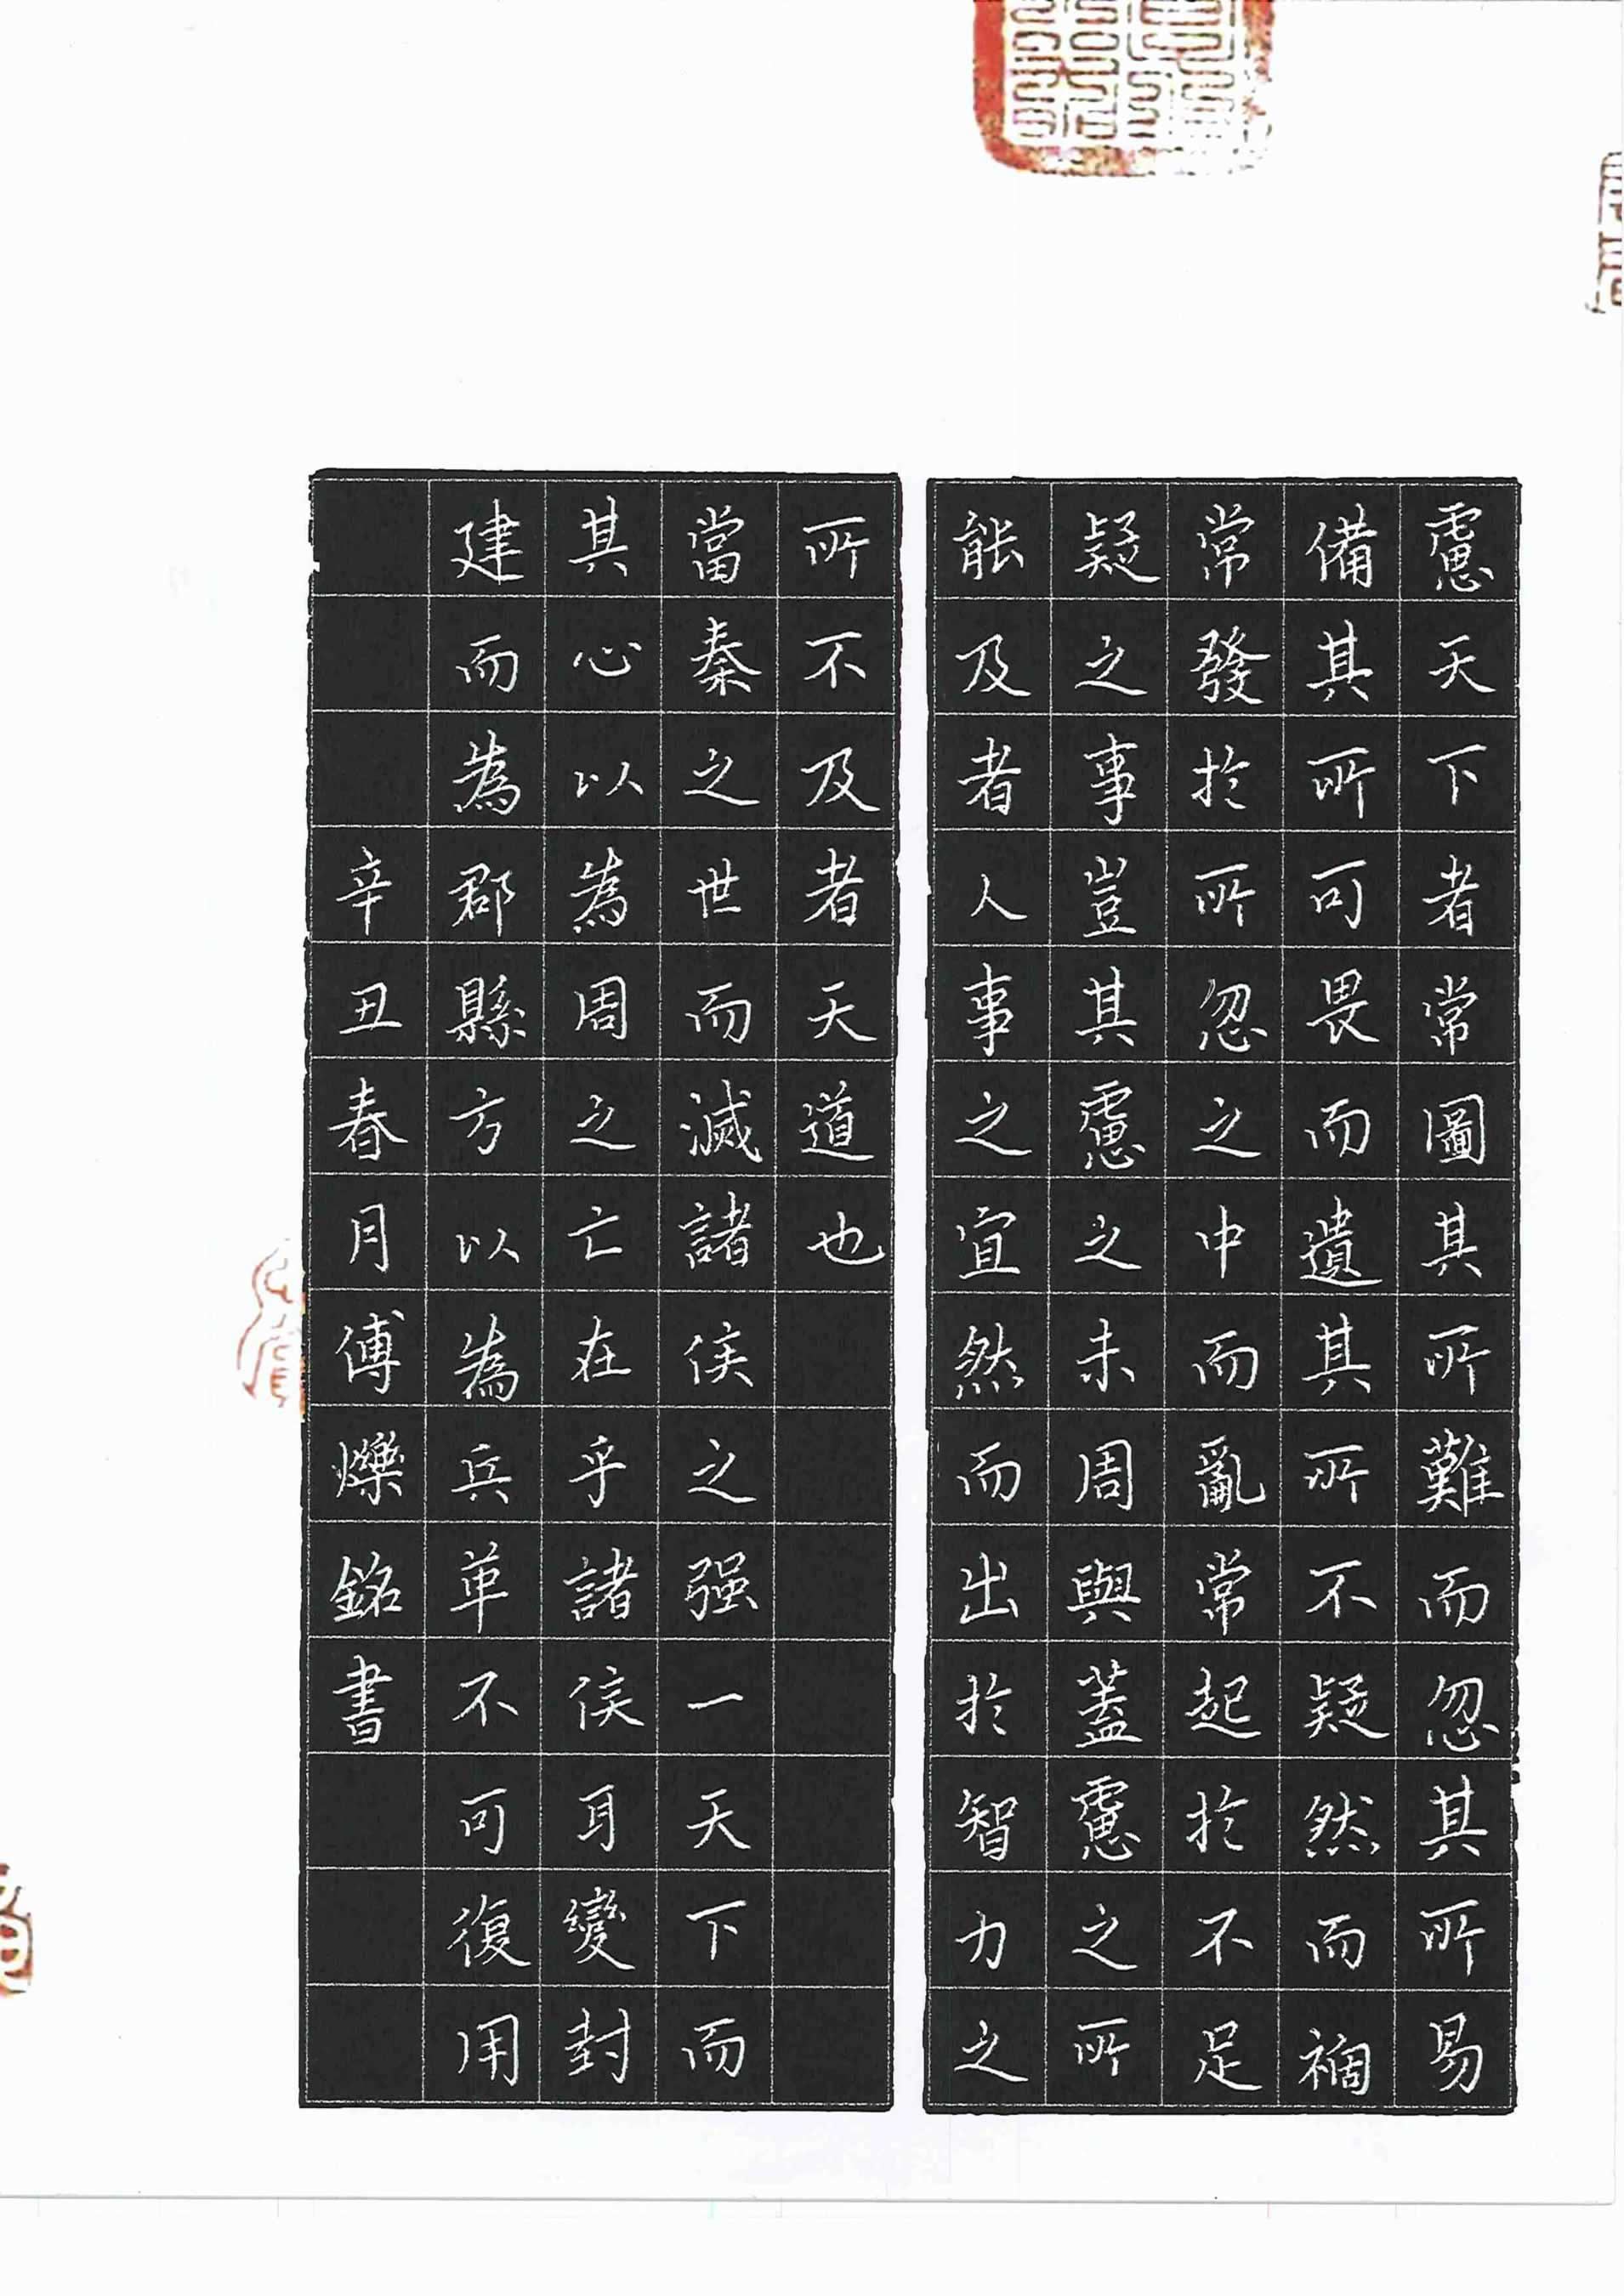 慮天下者常圖其所難而忽其所易
備其所可畏而遺其所不疑然而禍
常發於所忽之中而亂常起於不足
疑之事豈其慮之未周與蓋慮之所
能及者人事之宜然而出於智力之
所不及者天道也
當秦之世而滅諸侯之强一天下而
其心以為周之亡在乎諸侯耳變封
建而為郡縣方以為兵革不可復用
辛丑春月傅爍銘書